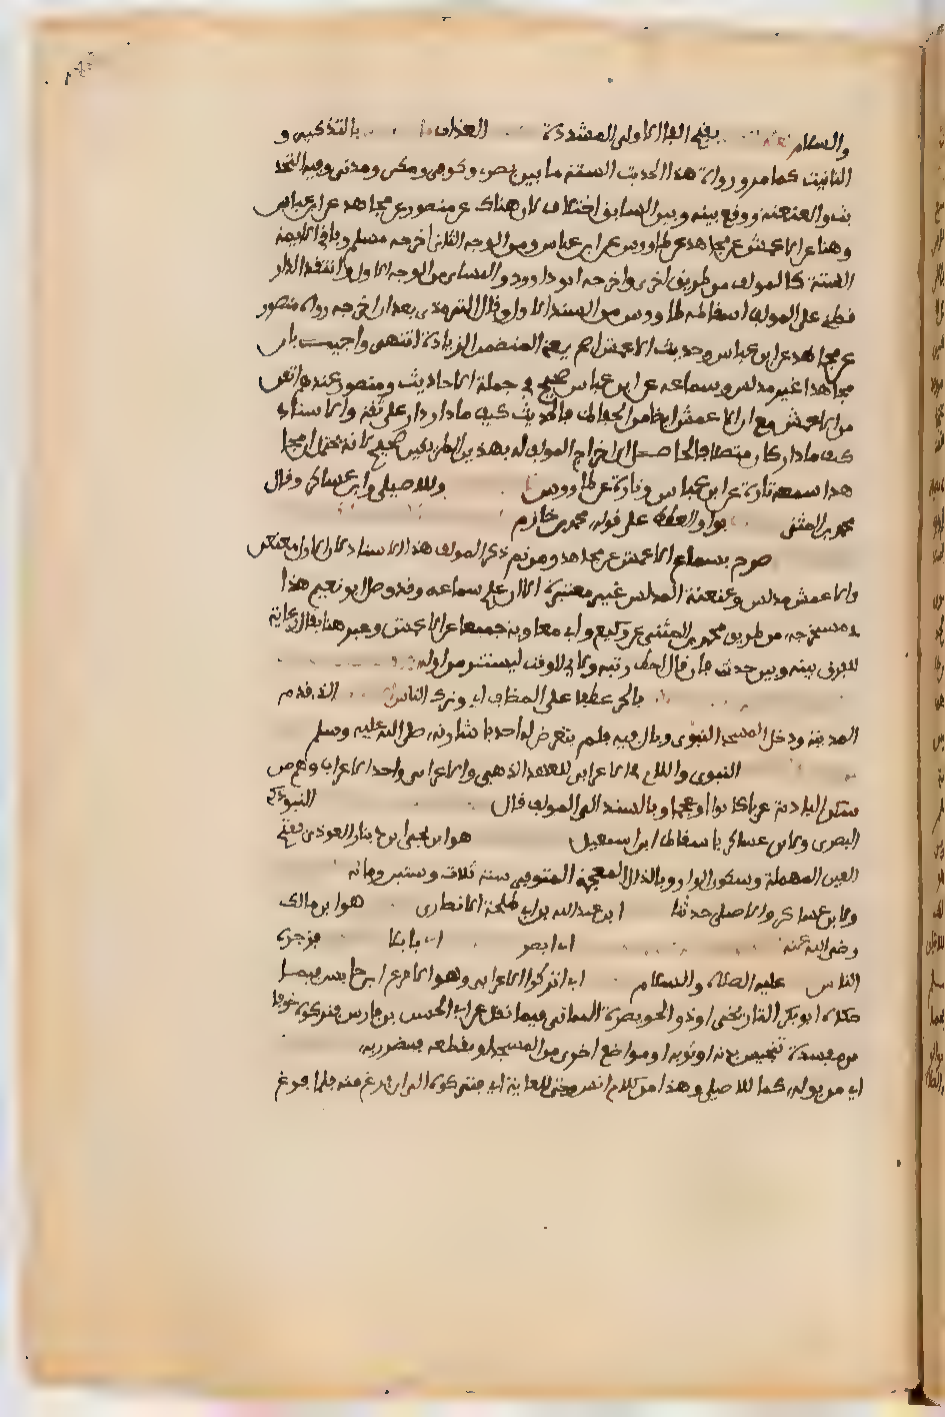 والسلام بفتح الفاء الاولى المشددة العذاب بالتذكير و
التانيث كما مر ورواة هذا الحديث الستة ما بين بصرى وكوفى ومكى ومدنى وفيه التحد
يث والعنعنة ووقع بينه وبين السابق اختلاف لان هناك عن منصور عن مجاهد عن ابن عباس
وهنا عن الاعمش عن مجاهد عن طاووس عن ابن عباس ومن الوجه الثانى اخرجه مسلم وباقى الايمة
الستة كالمولف من طريق اخرى واخرجه ابو داوود والنساى من الوجه الاول وانتقد الدار
قطنى على المولف اسقاطه طاووس من السند الاول وقال الترمذى بعد ان اخرجه رواه منصور
عن مجاهد عن ابن عباس وحديث الاعمش اصح يعنى المتضمن الزيادة انتهى واجيب بان
مجاهدا غير مدلس وسماعه عن ابن عباس صحيح فى جملة الاحاديث ومنصور عندهم اتقن
من الاعمش مع ان الاعمش ايضا من الحفاظ فالحديث كيف ما دار دار على ثقة والاسناد
كيف ما دار كان متصلا فالحاصل ان اخراج المولف له بهذين الطريقين صحيح لانه يحتمل ان مجا
هدا سمعه تارة عن ابن عباس وتارة عن طاووس وللاصيلى وابن عساكر وقال
محمد بن المثنى بواو العطف على قوله محمد بن خازم
صرح بسماع الاعمش عن مجاهد ومن ثم ذكر المولف هذا الاسناد لان الاول معنعن
والاعمش مدلس وعنعنة المدلس غير معتبرة الا ان علم سماعه وقد وصل ابو نعيم هذا
فى مستخرجه من طريق محمد بن المثنى عن وكيع وابى معاوية جميعا عن الاعمش وعبر هنا بقال رعاية
للفرق بينه وبين حدث فان قال احط رتبة ولابى الوقت ليستتر من بوله
بالجر عطفا على المضاف اى وترك الناس الذى قدم
المدينة ودخل المسجد النبوى وبال فيه فلم يتعرض له احد باشارته صلى الله عليه وسلم
النبوى واللام فى الاعرابى للعهد الذهنى والاعرابى واحد الاعراب وهم من
سكن البادية عربا كانوا او عجما وبالسند الى المولف قال التبوذكى
البصرى ولابن عساكر باسقاط ابن اسمعيل هو ابن يحيى بن دينار العوذى بفتح
العين المهملة وسكون الواو وبالذال المعجمة المتوفى سنة ثلاث وستين ومائة
ولابن عساكر والاصيلى حدثنا ابن عبد الله بن ابى طلحة الانصارى هو ابن مالك
رضى الله عنه اى ابصر اى بايلا فزجره
الناس عليه الصلاة والسلام اى اتركوا الاعرابى وهو الاقرع ابن حابس فيما
حكاه ابو بكر التاريخى او ذو الخويصرة اليمانى فيما نقل عن ابى الحسن بن فارس فتركوه خوفا
من مفسدة تنجيس بدنه او ثوبه او مواضع اخرى من المسجد او يقطعه فيتضرر به
اى من بوله كما للاصيلى وهذا من كلام انس وحتى للغاية اى فتركوه الى ان فرغ منه فلما فرغ